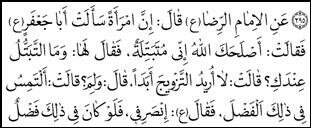 ﴿٢٩٥﴾ عَنِ الْاِمَامِ الرِّضَا(ع) قَالَ: اِنَّ امْرَأَةً سَأَلَتْ أَبَا جَعْفَرٍ(ع)
فَقَالَتْ: أَصْلَحَكَ اللهُ اِنِّى مُتَبَتِّلَةٌ، فَقَالَ لَهَا: وَمَا التَّبَتُّلُ
عِنْدَكِ؟ قَالَتْ: لَا اُرِيدُ التَّزْوِيجَ أَبَداً، قَالَ: وَلِمَ؟ قَالَتْ: أَلْتَمِسُ
فِي ذٰلِكَ الْفَضْلَ، فَقَالَ(ع): اِنْصَرِفِي، فَلَوْ كَانَ فِي ذٰلِكَ فَضْلٌ